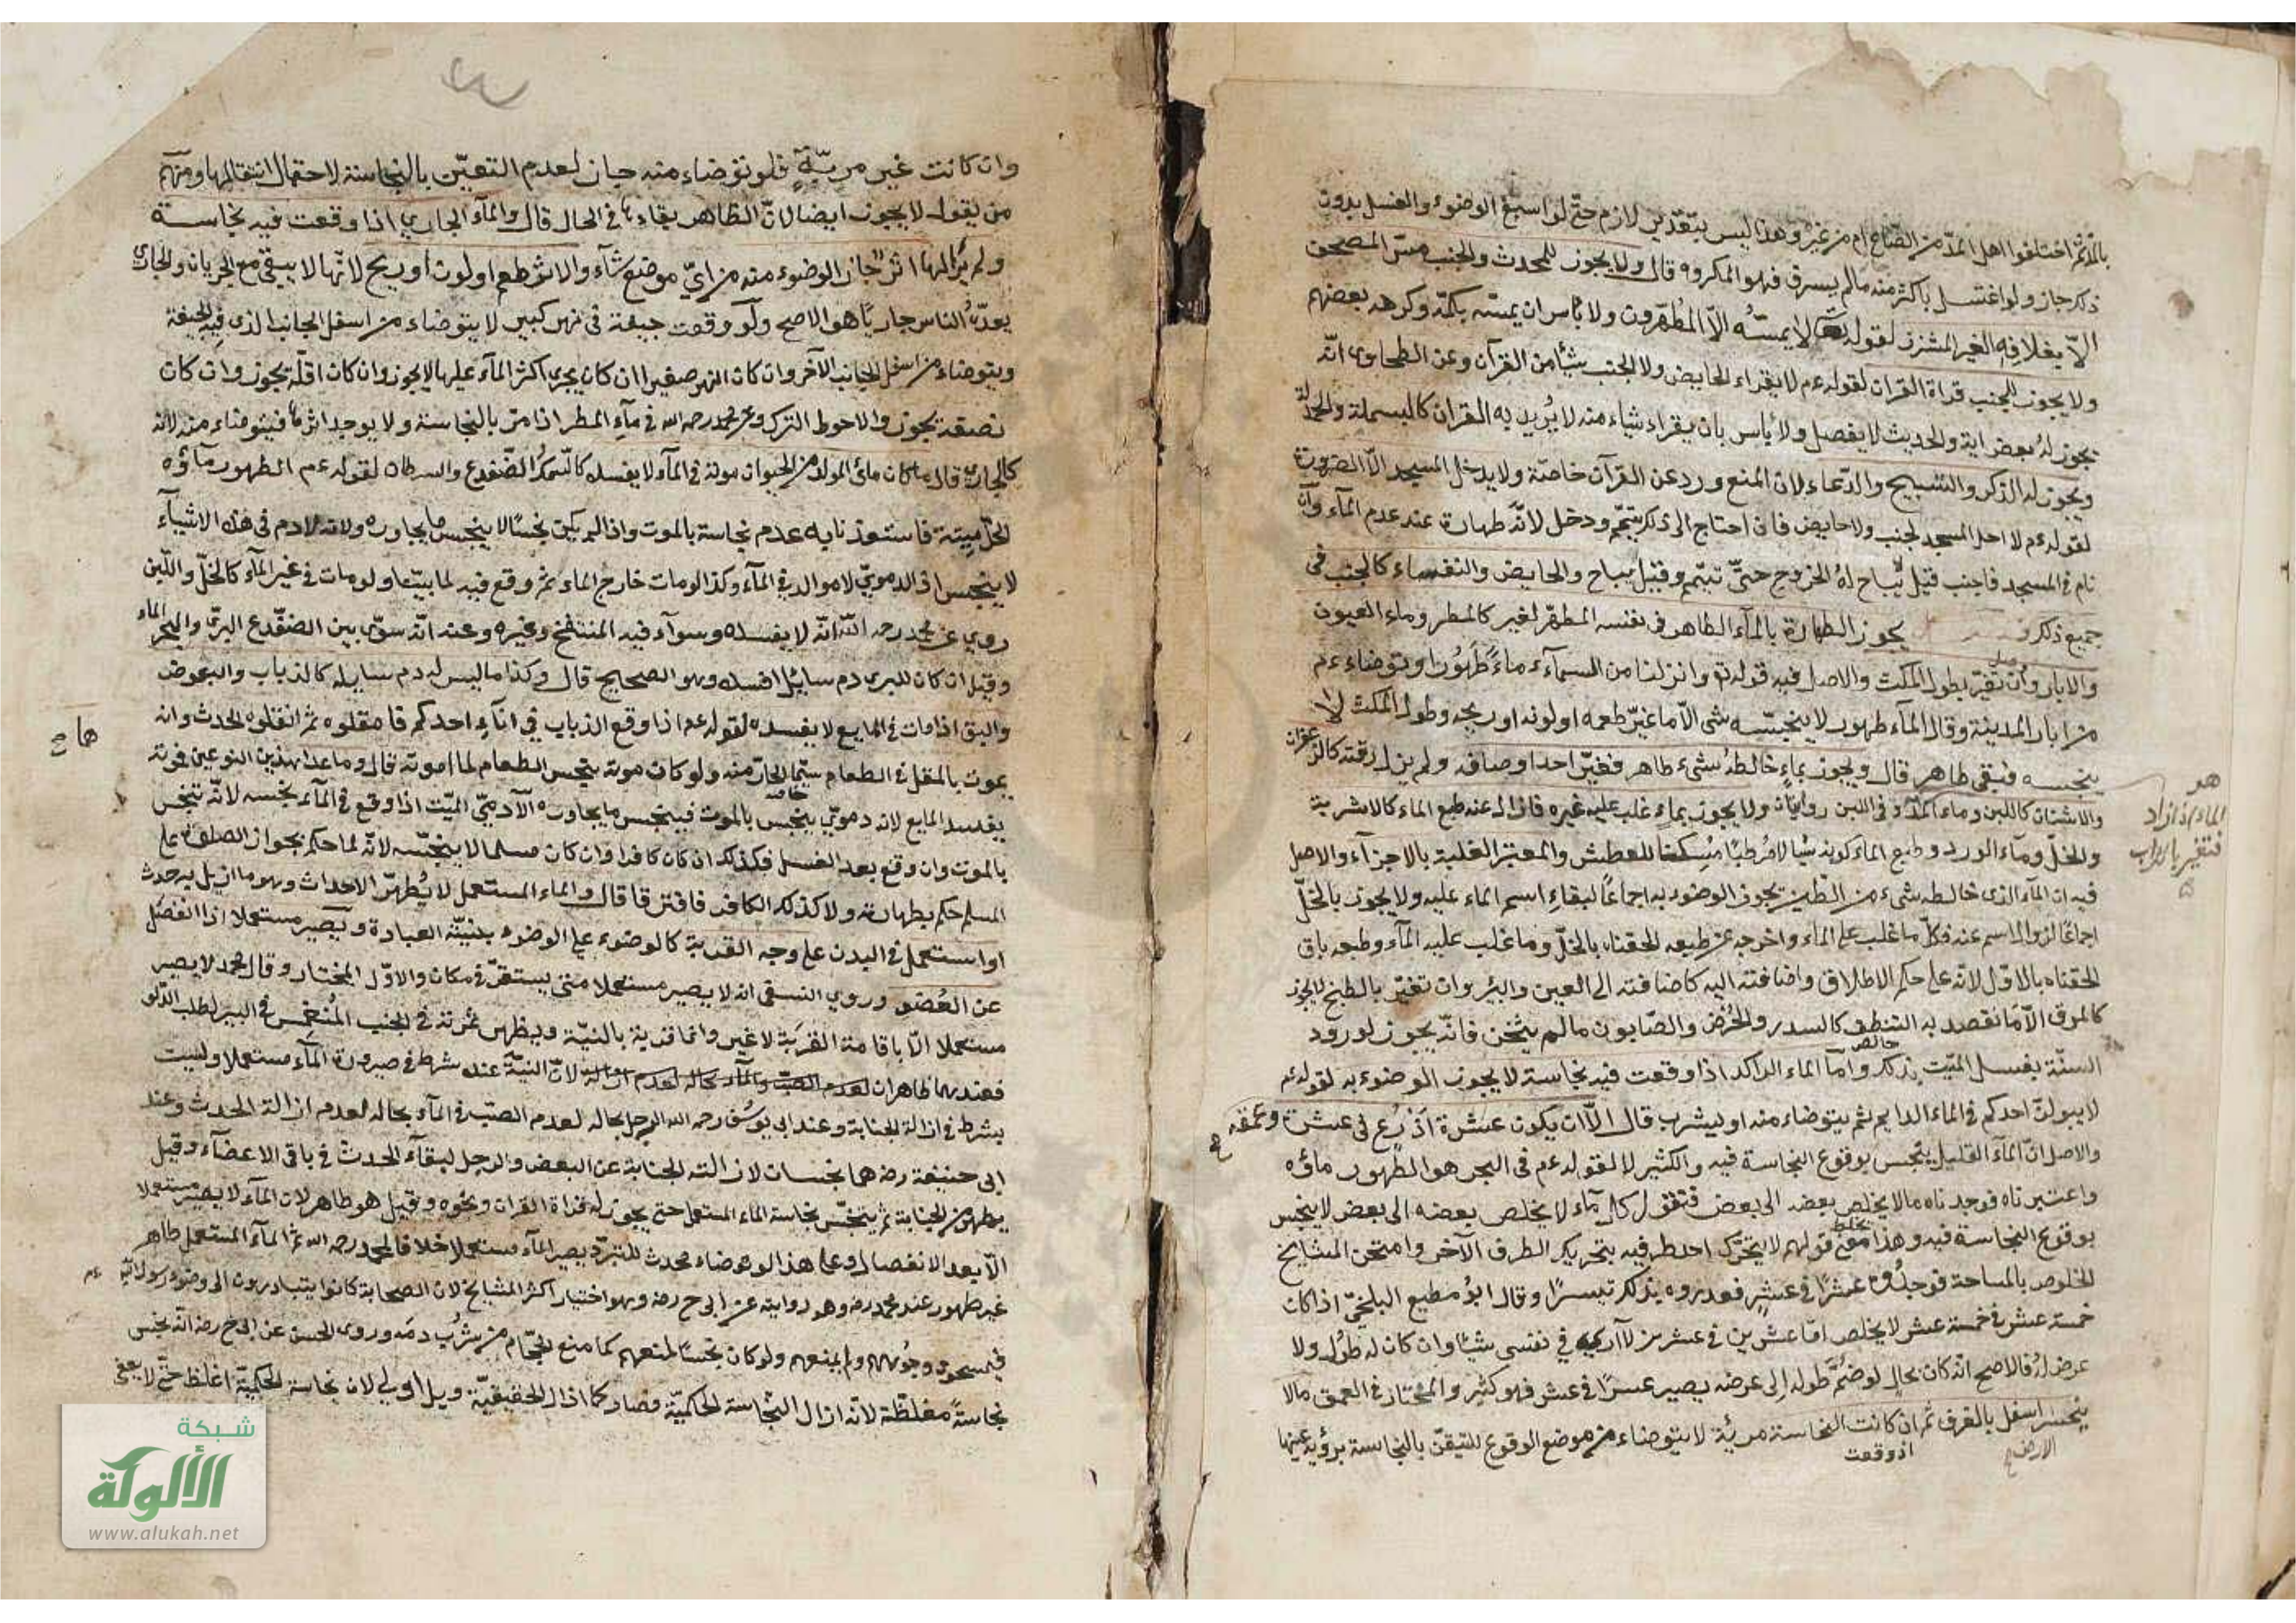 بالمد ثم اختلفوا اهل المد من الصاع ام من غيره وهذا ليس بتقدير لازم حتى لو اسبغ الوضوء والغسل بدون
ذلك جاز ولو اغتسل باكثر منه مالم يسرف فهو المكروه قال ولا يجوز للمحدث والجنب مس المصحف
الا بغلافه الغير المشرز لقوله تعالى لا يمسه الا المطهرون ولا باس ان يمسه بكمه وكرهه بعضهم
ولا يجوز للجنب قراة القران لقوله عم لا يقراء الحايض ولا الجنب شيئا من القرآن وعن الطحاوى انه
يجوز له بعض اية والحديث لا يفصل ولا بأس بان يقراء شياء منه لا يريد به القران كالبسملة والحمدلة
ويجوز له الذكر والتسبيح والدعاء لان المنع ورد عن القرآن خاصة ولا يدخل المسجد الا لضرورة
لقوله عم لا احل المسجد لجنب ولا حايض فان احتاج الى ذلك تيمم ودخل لانه طهارة عند عدم المآء وان
نام فى المسجد فاجنب قيل يباح له الخروج حتى تيمم وقيل يباح والحايض والنفساء كالجنب فى
جميع ذلك يجوز الطهارة بالمآء الطاهر فى نفسه المطهر لغير كالمطر وماء العيون
والابار وان تغير بطول المكث والاصل فيه قوله تع وانزلنا من السمآء ماء طهورا وتوضاء عم
من ابار المدينة وقال المآء طهور لا ينجسه شى الا ما غير طعمه او لونه او ريحه وطول المكث لا
ينجسه فبقى طاهر قال ويجوز بماء خالطه شىء طاهر فغير احد اوصافه ولم يزل رقته كالزعفران
والاشنان كاللبن وماء المد وفى اللبن روايتان ولا يجوز بماء غلب عليه غيره فازال عنه طبع الماء كالاشربة
والخل ومآء الورد وطبع الماء كونه سيالا مرطبا مسكنا للعطش والمعتبر الغلبة بالاجزآء والاصل
فيه ان المآء الذى خالطه شىء من الطين يجوز الوضوء به اجماعا لبقاء اسم الماء عليه ولا يجوز بالخل
اجماعا لزوال الاسم عنه فكل ما غلب على الماء واخرجه عن طبعه الحقناه بالخل وما غلب عليه المآء وطبعه باق
الحقناه بالاول لانه على حكم الاطلاق واضافته اليه كاضافته الى العين والبئر وان تغير بالطبخ لا يجوز
كالمرق الا ما تقصد به التنظف كالسدر والحرض والصابون مالم يثخن فانه يجوز لورود
السنة بغسل الميت بذلك واما الماء الراكد اذا وقعت فيه نجاسة لا يجوز الوضوء به لقوله عم
لا يبولن احدكم فى الماء الدايم ثم يتوضاء منه او يشرب قال الا ان يكون عشرة اذرع فى عشرة وعمقه
والاصل ان المآء القليل ينجس بوقوع النجاسة فيه والكثير لا لقوله عم فى البحر هو الطهور ماؤه
واعتبرناه فوجدناه مالا يخلص بعضه الى بعض فنقول كل مآء لا يخلص بعضه الى بعض لا ينجس
بوقوع النجاسة فيه وهذا معنى قولهم لا يتحرك احد طرفيه بتحريك الطرف الآخر وامتحن المشايخ
الخلوص بالمساحة فوجدوه عشرا فى عشر فقدروه بذلك تيسيرا وقال ابو مطيع البلخى اذا كان
خمسة عشر فى خمسة عشر لا يخلص اما عشرين فى عشرين لا ارى فى نفسى شيئا وان كان له طول ولا
عرض له فالاصح انه كان بحال لو ضم طوله الى عرضه يصير عشرا فى عشر فهو كثير والمختار فى العمق مالا
ينحسر اسفل بالغرف ثم ان كانت النجاسة مرئية لا يتوضاء من موضع الوقوع للتيقن بالنجاسة برؤية عينها
الارض
اذ وقعت
هو
الماء اذا زاد
فتغير بالتراب
وان كانت غير مرئية فلو توضاء منه جاز لعدم التيقن بالنجاسة لاحتمال انتقالها ومنهم
من يقول لا يجوز ايضا لان الظاهر بقاءها فى الحال قال والمآء الجارى اذا وقعت فيه نجاسة
ولم ير لها اثر جاز الوضوء منه من اى موضع شآء والاثر طعم او لون او ريح لانها لا يبقى مع الجريان والجارى
يعده الناس جاريا هو الاصح ولو وقعت جيفة فى نهر كبير لا يتوضاء من اسفل الجانب الذى فيه الجيفة
ويتوضاء من اسفل الجانب الآخر وان كان النهر صغيرا ان كان يجرى اكثر المآء عليها لا يجوز وان كان اقله يجوز وان كان
نصفه يجوز والاحوط الترك وعن محمد رحمه الله فى مآء المطر اذا مر بالنجاسة ولا يوجد اثرها فيتوضاء منه لانه
كالجارى قال ماكان مائى المولد من الحيوان موته فى المآء لا يفسده كالسمك والضفدع والسرطان لقوله عم الطهور مآؤه
الحل ميتته فاستفدنا به عدم نجاسة بالموت واذا لم يكن نجسا لا ينجس ما يجاوره ولانه لا دم فى هذه الاشيآء
لا ينجس اذ الدموى لا موالد فى المآء وكذا لو مات خارج الماء ثم وقع فيه لما بينا ولو مات فى غير المآء كالخل واللبن
روى عن محمد رحمه الله انه لا يفسده وسوآء فيه المنتفخ وغيره وعنه انه سوى بين الضفدع البرى والبحرى الماء
وقيل ان كان للبرى دم سايل افسده وهو الصحيح قال وكذا ما ليس له دم سايله كالذباب والبعوض
والبق اذا مات فى المايع لا يفسده لقوله عم اذا وقع الذباب فى انآء احدكم فامقلوه ثم انقلوه الحديث وانه
يموت بالمقل فى الطعام سيما الحار منه ولو كان موته ينجس الطعام لما امر به قال وما عدا هذين النوعين فموته
يفسد المايع لانه دموى ينجس بالموت فينجس ما يجاوره الآدمى الميت اذا وقع فى المآء نجسه لانه تنجس
بالموت وان وقع بعد الغسل فكذلك ان كان كافرا وان كان مسلما لا ينجسه لانه لما حكم بجواز الصلوة على
المسلم حكم بطهارته ولا كذلك الكافر فافترقا قال والماء المستعمل لا يطهر الاحداث وهو ما ازيل به حدث
او استعمل فى البدن على وجه القربة كالوضوء على الوضوء بنية العبادة ويصير مستعملا اذا انفصل
عن العضو وروى النسفى انه لا يصير مستعملا متى يستقر فى مكان والاول المختار وقال محمد لا يصير
مستعملا الا باقامة القربة لا غير وانما قربة بالنية ويظهر ثمرته فى الجنب المنغمس فى البير لطلب الدلو
فعندهما طاهران لعدم الصب والمآء بحاله لعدم ازالته لان النية عنده شرط فى صيرورة المآء مستعملا وليست
بشرط فى ازالة الجنابة وعند ابى يوسف رحمه الله الرجل بحاله لعدم الصب فى المآء بحاله لعدم ازالة الحدث وعند
ابى حنيفة رضه هما نجسان لازالته الجنابة عن البعض والرجل لبقآء الحدث فى باقى الاعضآء وقيل
يطهر من الجنابة ثم ينجس نجاسة الماء المستعمل حتى يجوز له قراة القران ونحوه وقيل هو طاهر لان المآء لا يصير مستعملا
الا بعد الانفصال وعلى هذا لو توضاء محدث للتبرد يصير المآء مستعملا خلافا لمحمد رحمه الله ثم المآء المستعمل طاهر
غير طهور عند محمد رضه وهو روايته عن ابى ح رضه وهو اختيار اكثر المشايخ لان الصحابة كانوا يتبادرون الى وضوء رسول الله عم
فيمسحون وجوههم ولم يمنعهم ولو كان نجسا لمنعهم كما منع الحجام من شرب دمه وروى الحسن عن ابى ح رضه انه نجس
نجاسة مغلظة لانه ازال النجاسة الحكمية فصار كما اذال الحقيقية وبل اولى لان نجاسة الحكمية اغلظ حتى لا يعفى
شبكة
الألوكة
www.alukah.net